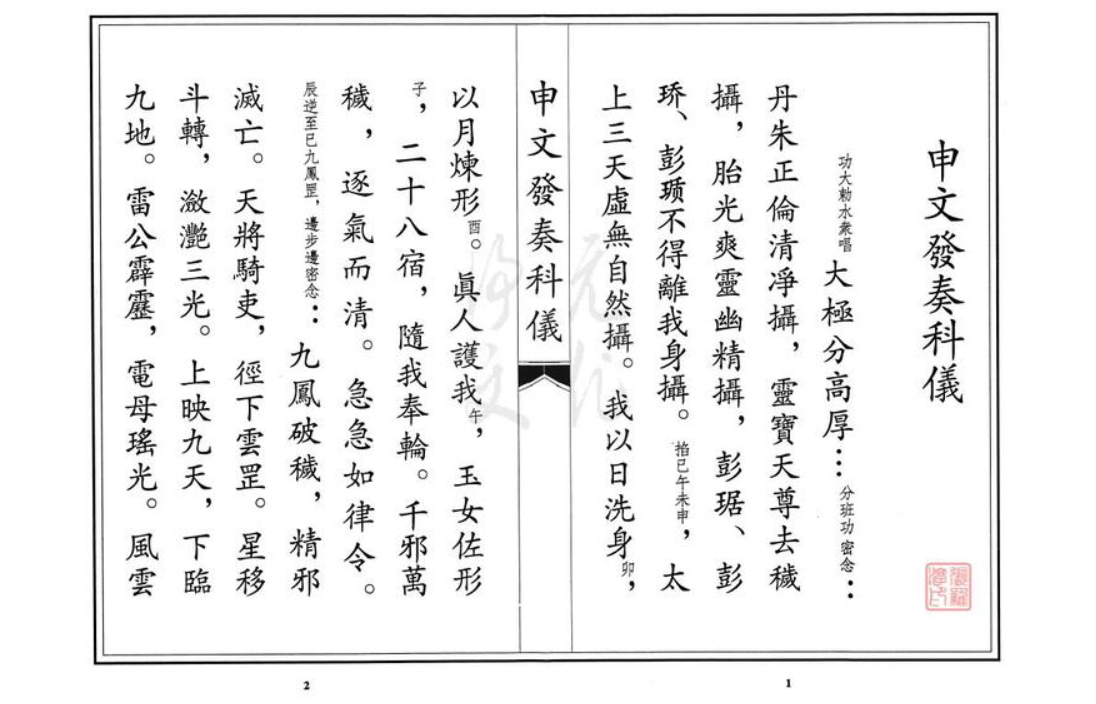 申文發奏科儀
功大勅水衆唱大極分高厚…分班功密念：
丹朱正倫清凈攝，靈寶天尊去穢
攝，胎光爽靈幽精攝，彭琚、彭
、彭不得離我身攝。掐巳午未申，太
上三天虛無自然攝。我以日洗身卯，
申文發奏科儀
以月煉形酉。眞人護我午，玉女佐形
子，二十八宿，隨我奉輪。千邪萬
穢，逐氣而清。急急如律令。
辰逆至巳九鳳罡，邊步邊密念：九鳳破穢，精邪
滅亡。天將騎吏，徑下雲罡。星移
斗轉，瀲灔三光。上映九天，下臨
九地。雷公霹靂，電母瑤光。風雲
1
2